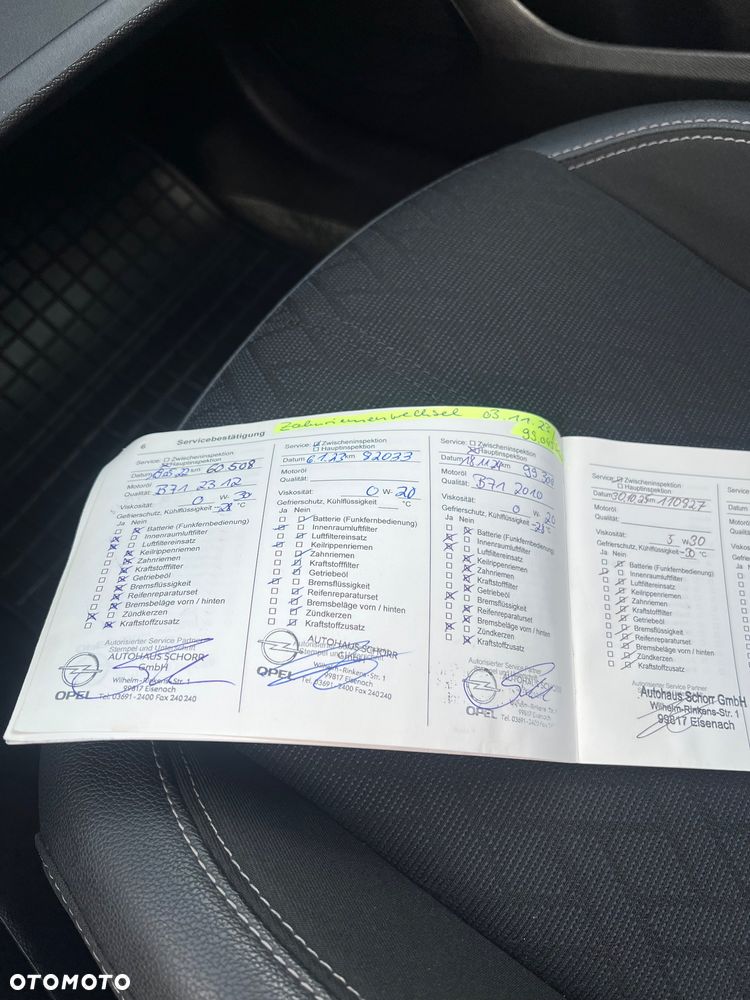 6 Servicebestätigung
Zahnriemenwechsel 03.11.23
Service: Zwischeninspektion
Hauptinspektion
km: 60.508
Motoröl
Qualität: B71 2312
Viskosität: 0 W- 30
Gefrierschutz, Kühlflüssigkeit -28 °C
Ja Nein
Batterie (Funkfernbedienung)
Innenraumluftfilter
Luftfiltereinsatz
Keilrippenriemen
Zahnriemen
Kraftstofffilter
Getriebeöl
Bremsflüssigkeit
Reifenreparaturset
Bremsbeläge vorn / hinten
Zündkerzen
Kraftstoffzusatz
Autorisierter Service Partner
Stempel und Unterschrift
AUTOHAUS SCHORR
GmbH
Wilhelm-Rinkens-Str. 1
99817 Eisenach
OPEL Tel. 03691-2400 Fax 240 240
Service: Zwischeninspektion
Hauptinspektion
Datum 6.1.23 km: 92033
Motoröl
Qualität:
Viskosität: 0 W- 20
Gefrierschutz, Kühlflüssigkeit °C
Ja Nein
Batterie (Funkfernbedienung)
Innenraumluftfilter
Luftfiltereinsatz
Keilrippenriemen
Zahnriemen
Kraftstofffilter
Getriebeöl
Bremsflüssigkeit
Reifenreparaturset
Bremsbeläge vorn / hinten
Zündkerzen
Kraftstoffzusatz
Autorisierter Service Partner
Stempel und Unterschrift
AUTOHAUS SCHORR
GmbH
Wilhelm-Rinkens-Str. 1
99817 Eisenach
OPEL Tel. 03691-2400 Fax 240 240
Service: Zwischeninspektion
Hauptinspektion
Datum 18.11.24 km: 99.308
Motoröl
Qualität: B71 2010
Viskosität: 0 W- 20
Gefrierschutz, Kühlflüssigkeit -28 °C
Ja Nein
Batterie (Funkfernbedienung)
Innenraumluftfilter
Luftfiltereinsatz
Keilrippenriemen
Zahnriemen
Kraftstofffilter
Getriebeöl
Bremsflüssigkeit
Reifenreparaturset
Bremsbeläge vorn / hinten
Zündkerzen
Kraftstoffzusatz
Autorisierter Service Partner
Stempel und Unterschrift
Wilhelm-Rinkens-Str. 1
99817 Eisenach
OPEL Tel. 03691-2400 Fax 240 240
Service: Zwischeninspektion
Hauptinspektion
Datum 30.10.25 km: 110927
Motoröl
Qualität:
Viskosität: 5 W 30
Gefrierschutz, Kühlflüssigkeit -30 °C
Ja Nein
Batterie (Funkfernbedienung)
Innenraumluftfilter
Luftfiltereinsatz
Keilrippenriemen
Zahnriemen
Kraftstofffilter
Getriebeöl
Bremsflüssigkeit
Reifenreparaturset
Bremsbeläge vorn / hinten
Zündkerzen
Kraftstoffzusatz
Autorisierter Service Partner
Autohaus Schorr GmbH
Wilhelm-Rinkens-Str. 1
99817 Eisenach
Service:
Datum
Motoröl
Qualität:
OTOMOTO